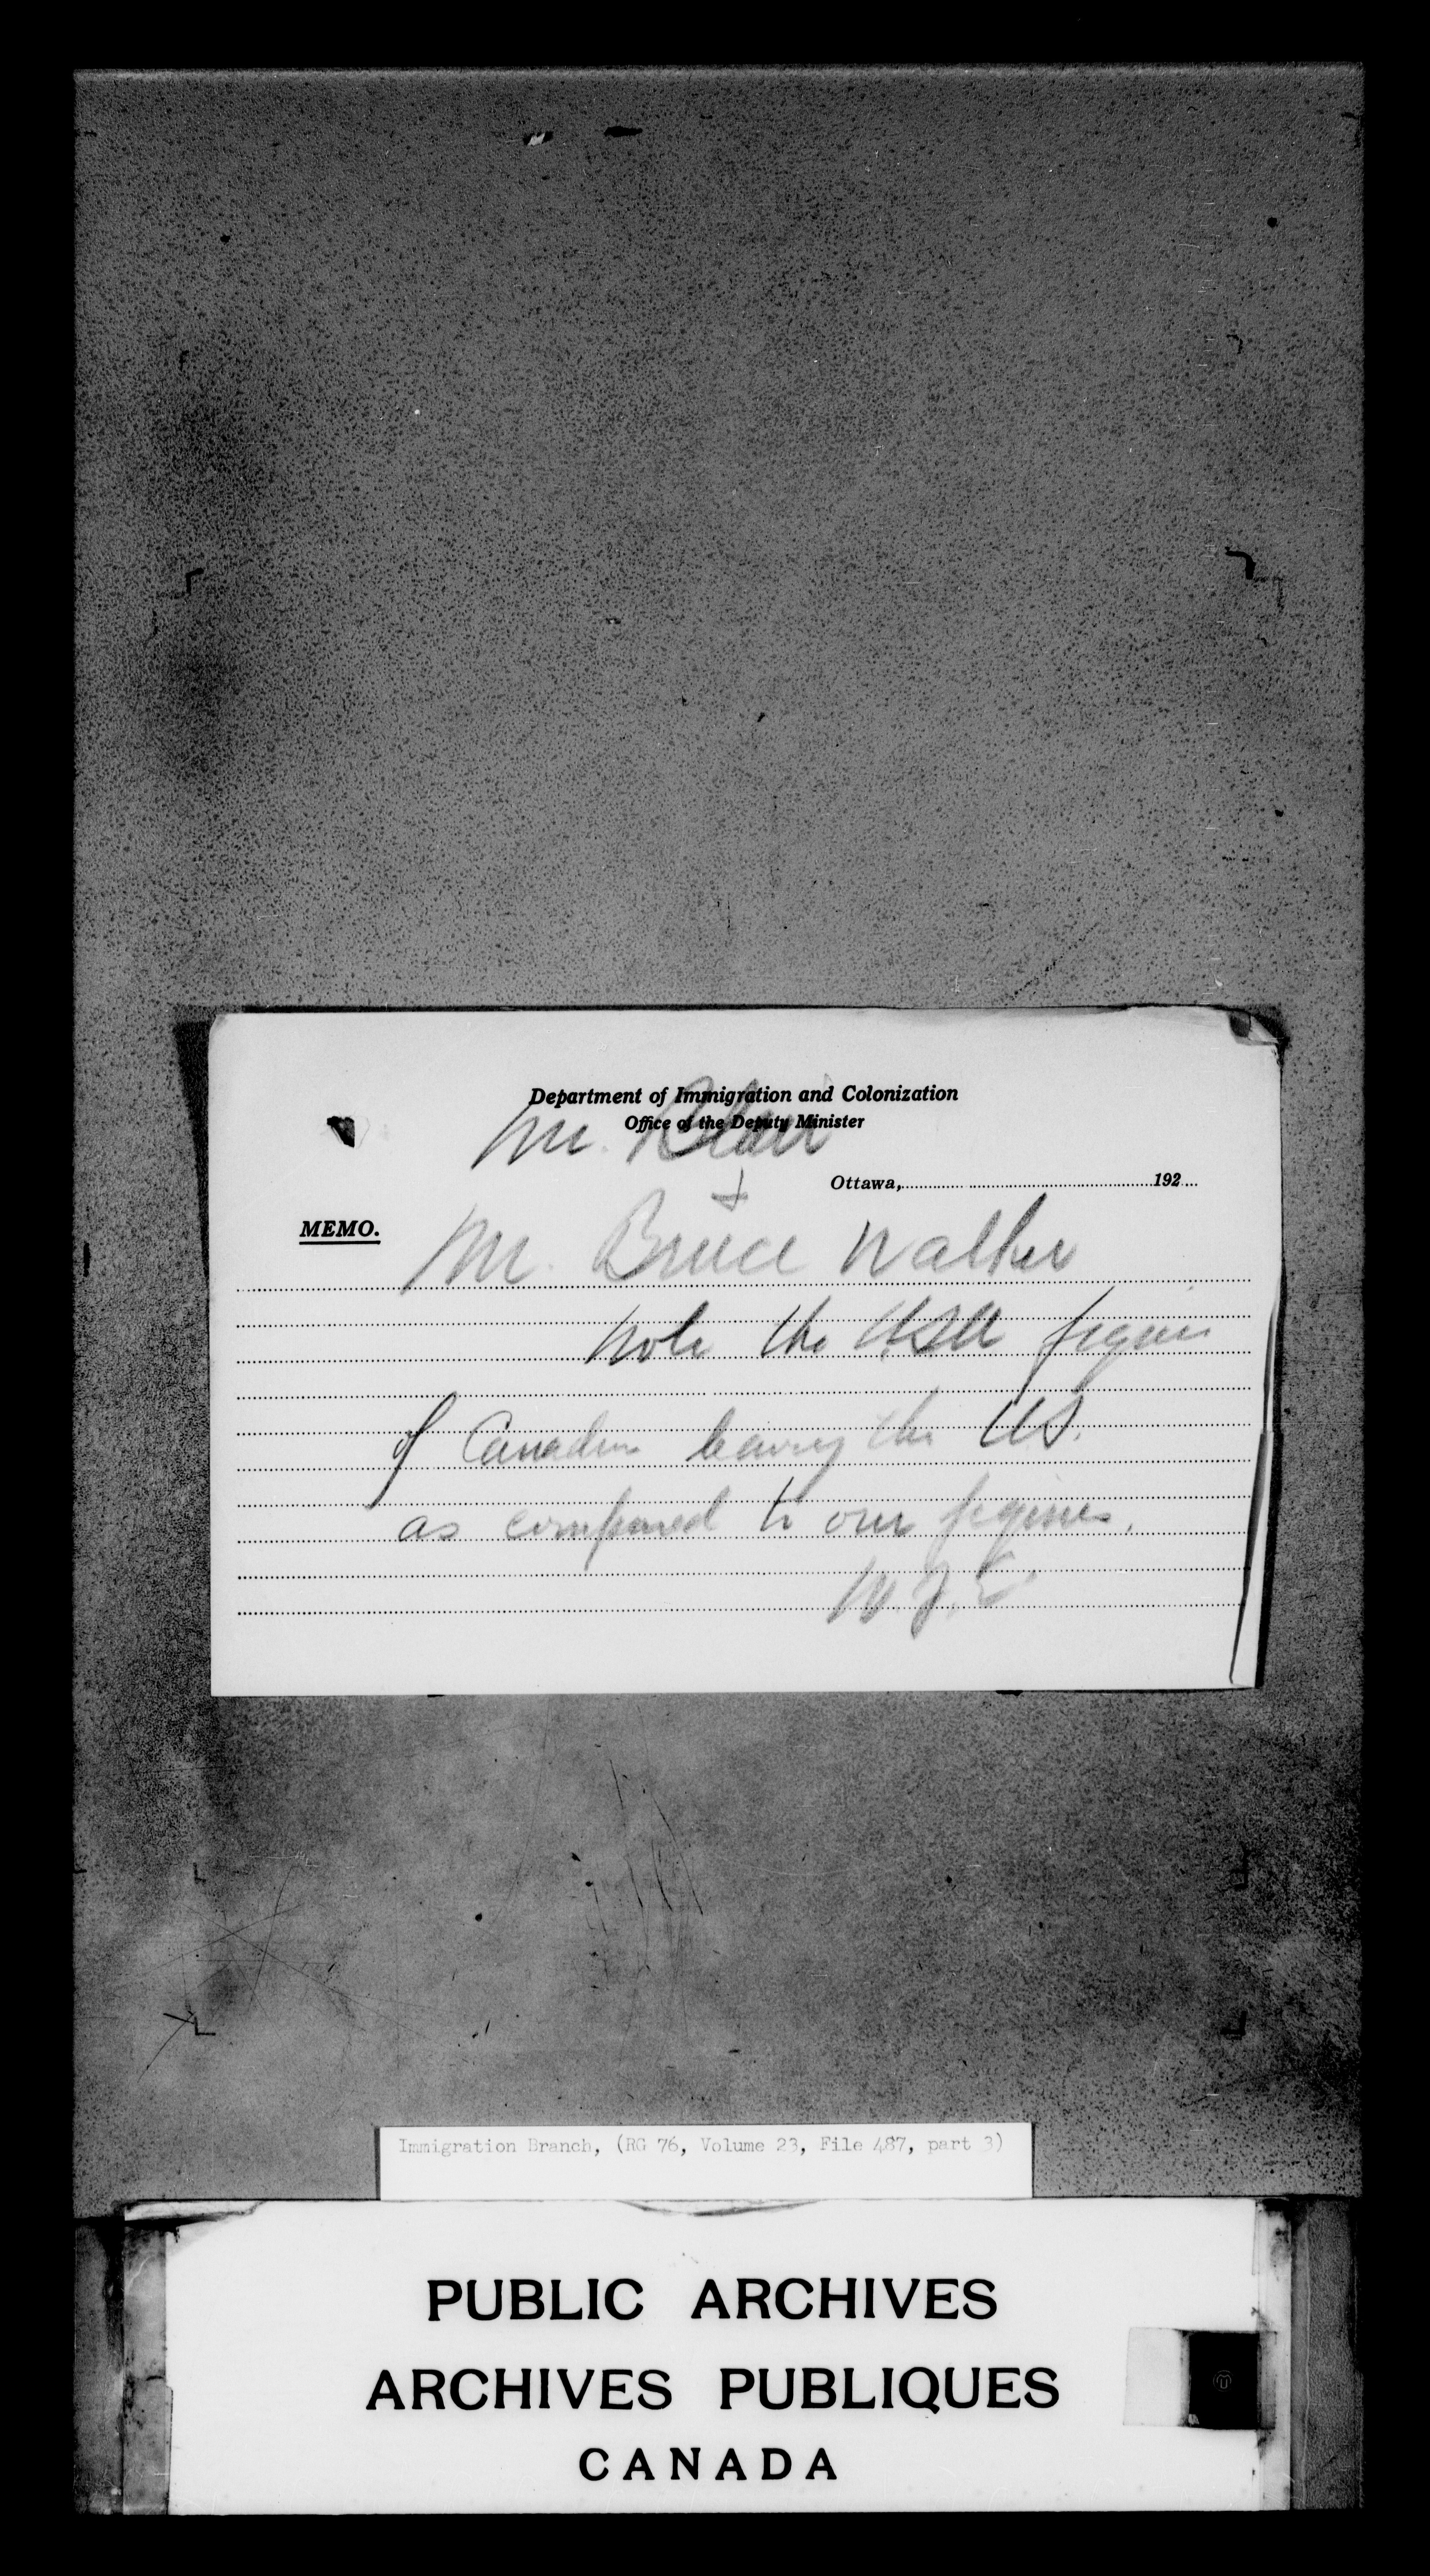 Department of Immigration and Colonization
Office of the Deputy Minister
Mr. Blair
+
Ottawa, 192
MEMO.
Mr. Bruce Walker
Note the USA figures
of Canadians leaving the U.S.
as compared to our figures.
W.J.E.
Immigration Branch, (RG 76, Volume 23, File 487, part 3)
PUBLIC ARCHIVES
ARCHIVES PUBLIQUES
CANADA